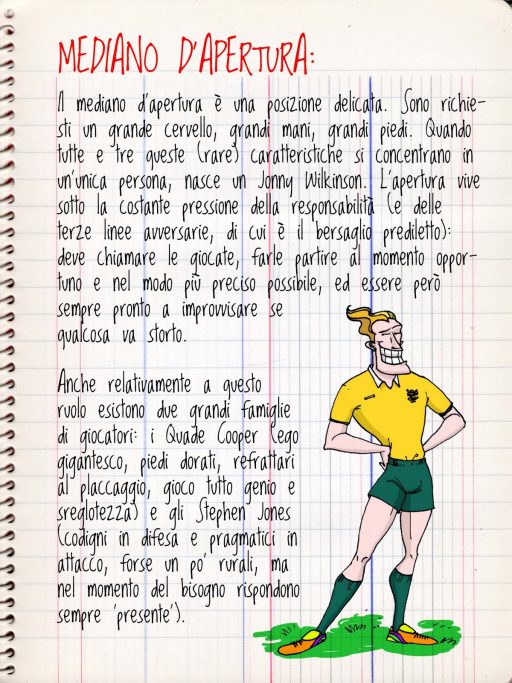 MEDIANO D'APERTURA:
Il mediano d'apertura è una posizione delicata. Sono richie-
sti un grande cervello, grandi mani, grandi piedi. Quando
tutte e tre queste (rare) caratteristiche si concentrano in
un'unica persona, nasce un Jonny Wilkinson. L'apertura vive
sotto la costante pressione della responsabilità (e delle
terze linee avversarie, di cui è il bersaglio prediletto):
deve chiamare le giocate, farle partire al momento oppor-
tuno e nel modo più preciso possibile, ed essere però
sempre pronto a improvvisare se
qualcosa va storto.
Anche relativamente a questo
ruolo esistono due grandi famiglie
di giocatori: i Quade Cooper (ego
gigantesco, piedi dorati, refrattari
al placcaggio, gioco tutto genio e
sreglotezza) e gli Stephen Jones
(codigni in difesa e pragmatici in
attacco, forse un po' rurali, ma
nel momento del bisogno rispondono
sempre 'presente').